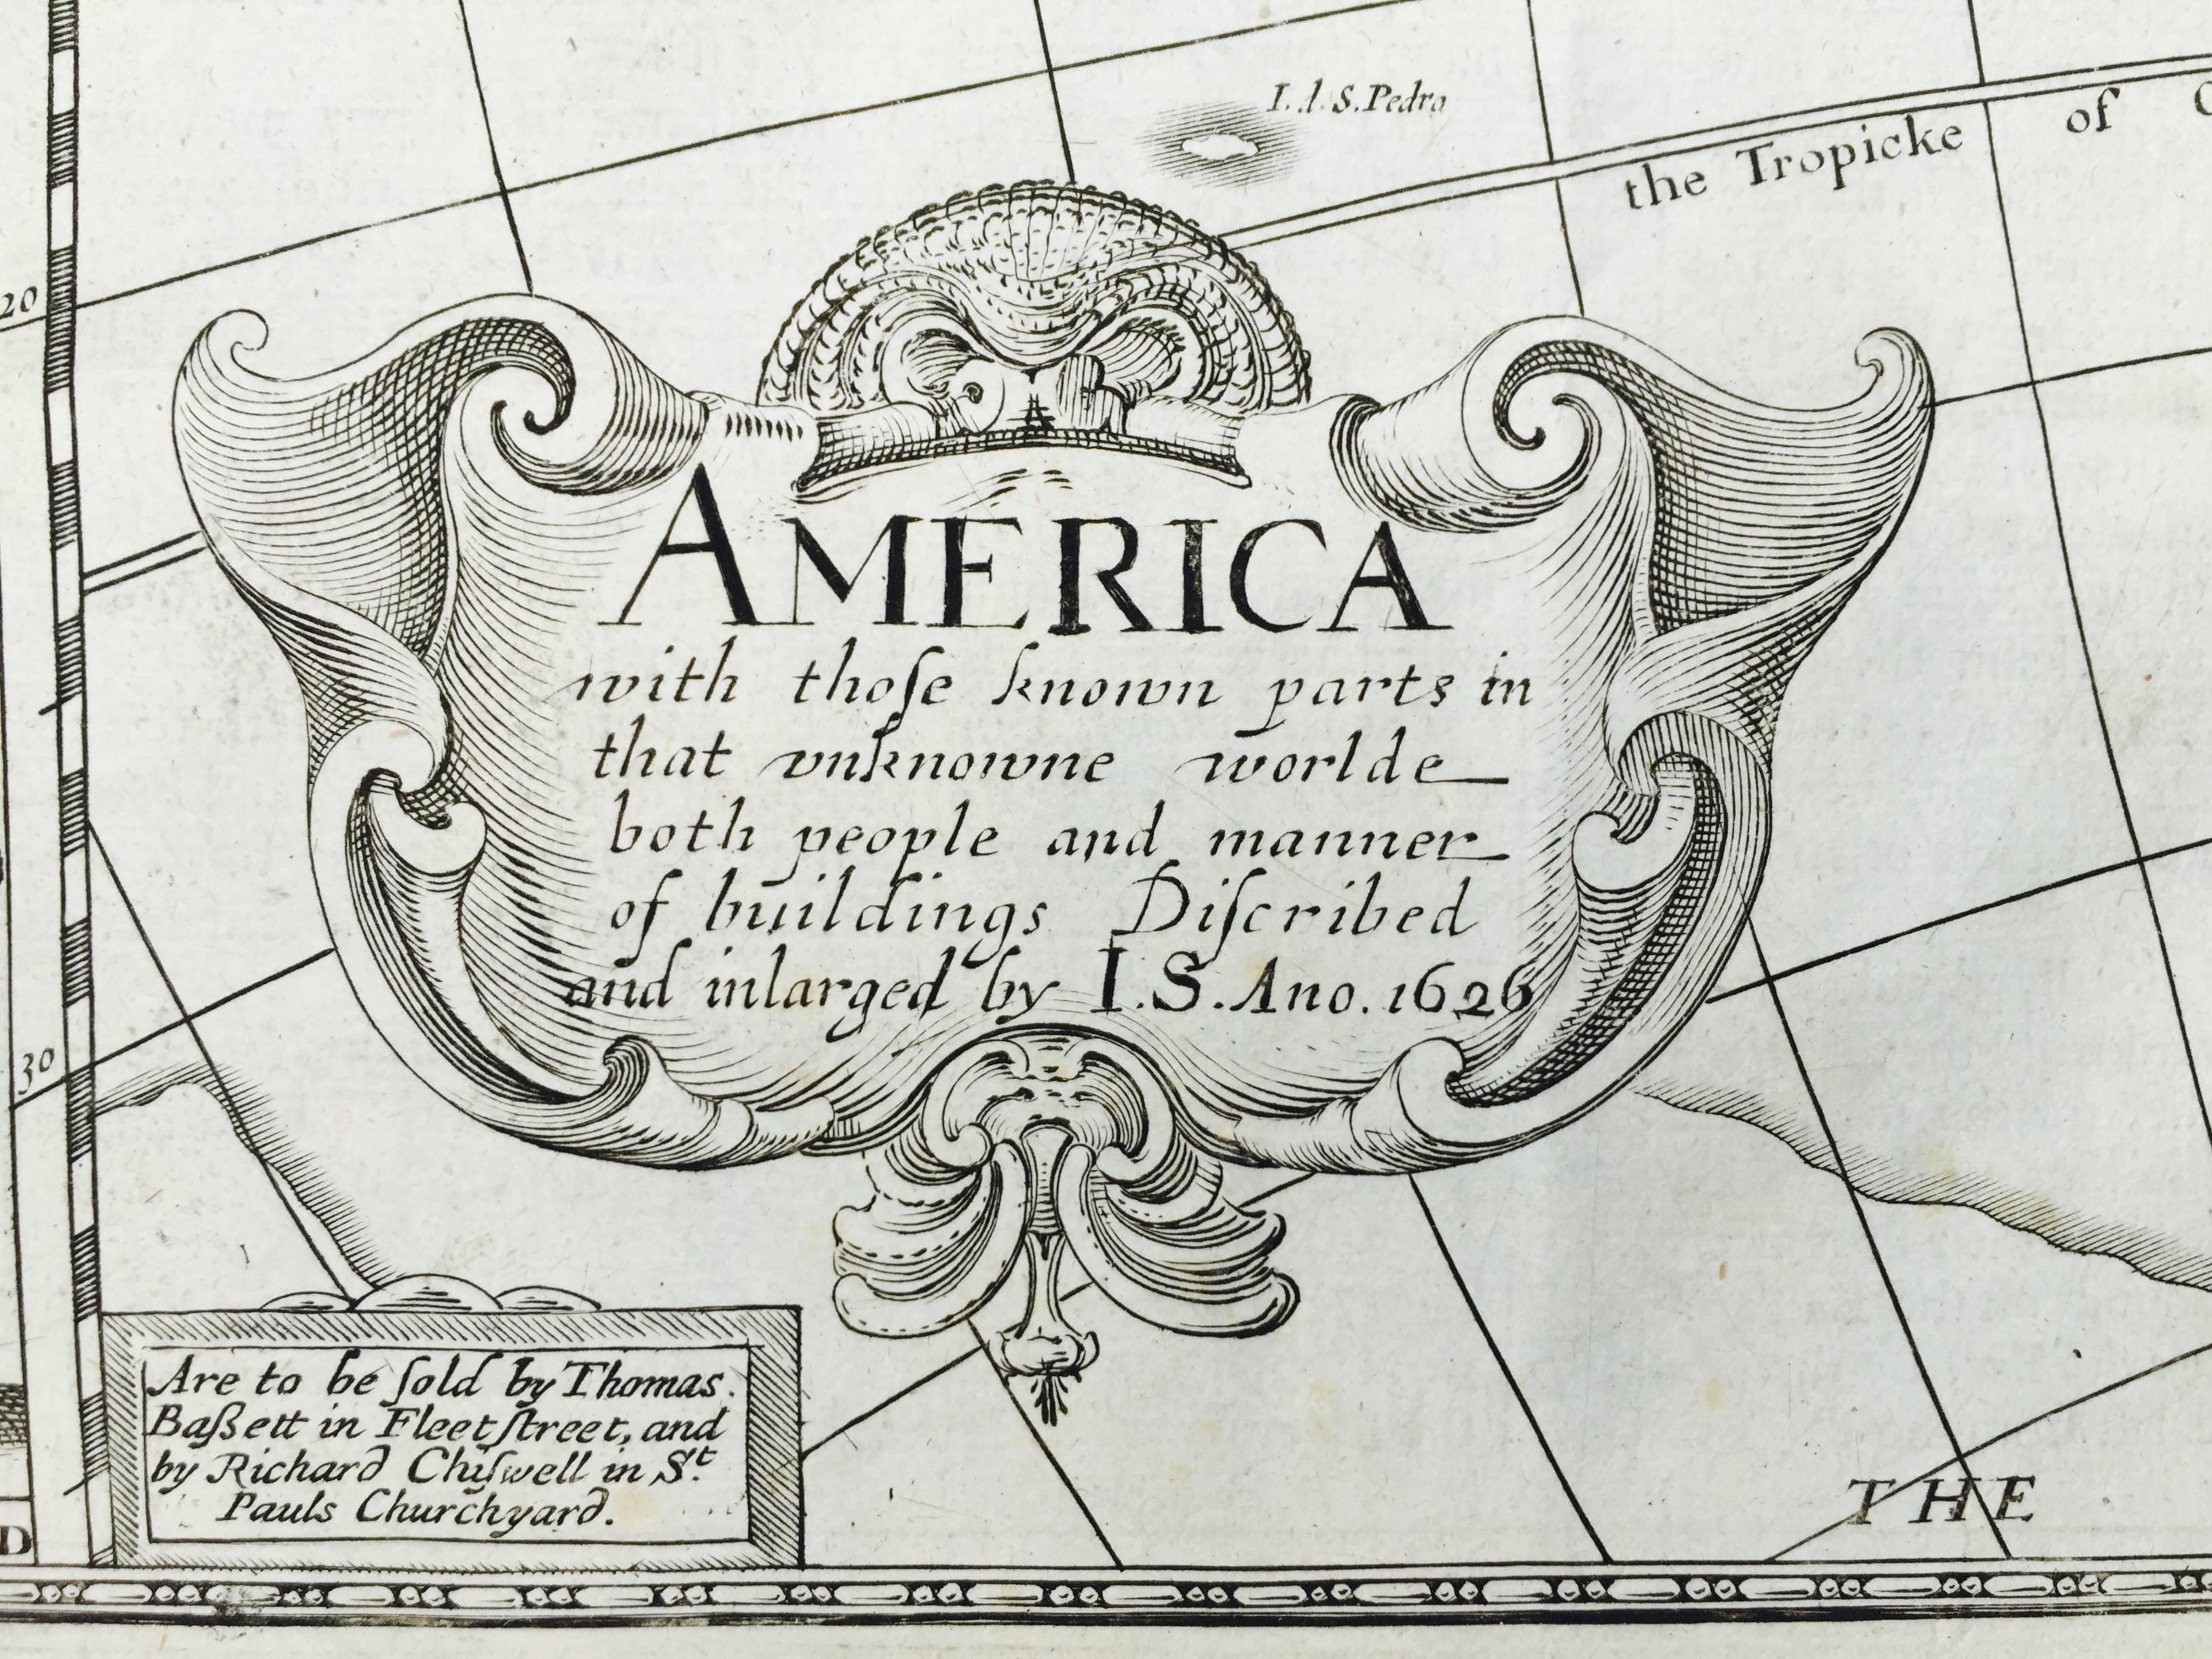 I.d.S.Pedro
the Tropicke of
20
AMERICA
with thoſe known parts in
that vnknowne worlde
both people and manner
of buildings Diſcribed
and inlarged by I.S.Ano.1626
30
Are to be ſold by Thomas.
Baßett in Fleetſtreet, and
by Richard Chiſwell in St.
Pauls Churchyard.
THE
D